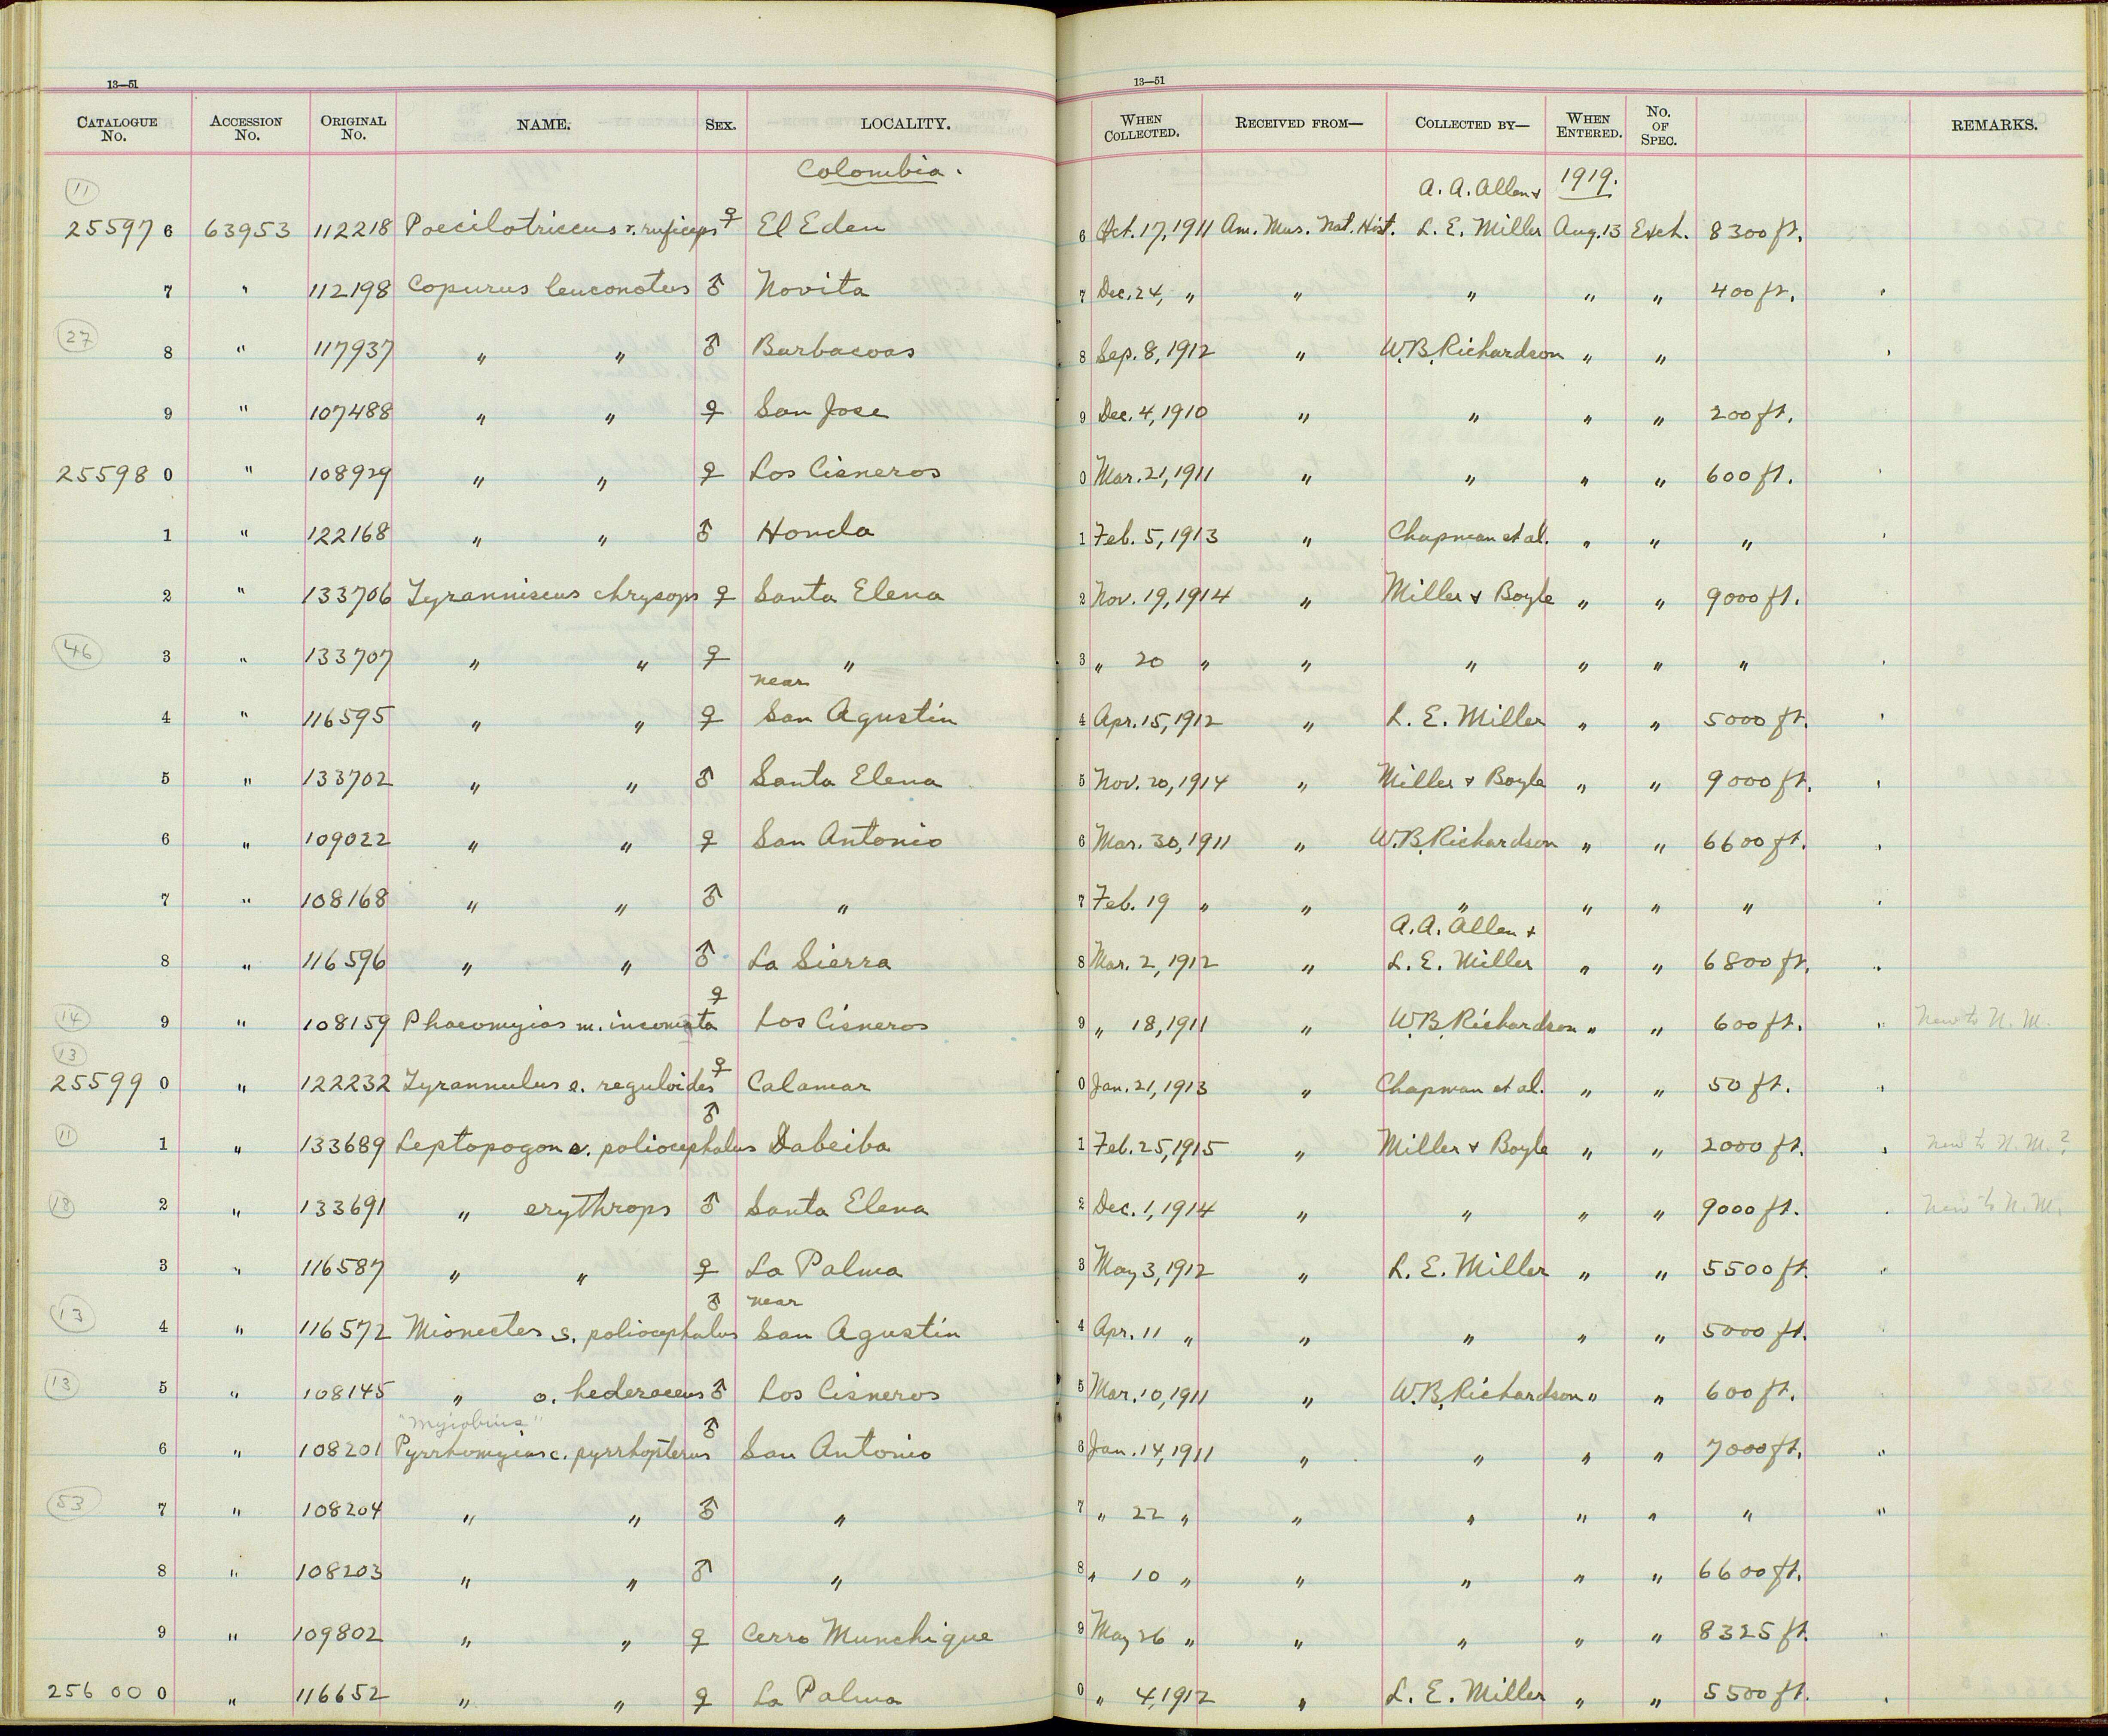 13—51
13—51
CATALOGUE No. ACCESSION No. ORIGINAL No. NAME. SEX. LOCALITY. WHEN COLLECTED. RECEIVED FROM— COLLECTED BY— WHEN ENTERED. No. OF SPEC. REMARKS.
Colombia.
11 A. A. Allen & 1919.
25597 6 63953 112218 Poecilotriccus r. ruficeps ♀ El Eden 6 Oct. 17, 1911 Am. Mus. Nat. Hist. L. E. Miller Aug. 13 Exch. 8300 ft.
7 " 112198 Copurus leuconotus ♂ Novita 7 Dec. 24, " " " " " 400 ft. "
27
8 " 117937 " " ♂ Barbacoas 8 Sep. 8, 1912 " W. B. Richardson " " "
9 " 107488 " " ♀ San Jose 9 Dec. 4, 1910 " " " " 200 ft.
25598 0 " 108929 " " ♀ Los Cisneros 0 Mar. 21, 1911 " " " " 600 ft. "
1 " 122168 " " ♂ Honda 1 Feb. 5, 1913 " Chapman et al. " " " "
2 " 133706 Tyranniscus chrysops ♀ Santa Elena 2 Nov. 19, 1914 " Miller & Boyle " " 9000 ft.
46 3 " 133707 " " ♀ " 3 " 20 " " " " " " "
near
4 " 116595 " " ♀ San Agustin 4 Apr. 15, 1912 " L. E. Miller " " 5000 ft. "
5 " 133702 " " ♂ Santa Elena 5 Nov. 20, 1914 " Miller & Boyle " " 9000 ft. "
6 " 109022 " " ♀ San Antonio 6 Mar. 30, 1911 " W. B. Richardson " " 6600 ft. "
7 " 108168 " " ♂ " 7 Feb. 19 " " " " " " "
A. A. Allen &
8 " 116596 " " ♂ La Sierra 8 Mar. 2, 1912 " L. E. Miller " " 6800 ft. "
14 9 " 108159 Phaeomyias m. incomta ♀ Los Cisneros 9 " 18, 1911 " W. B. Richardson " " 600 ft. " New to N. M.
13
25599 0 " 122232 Tyrannulus e. reguloides ♀ Calamar 0 Jan. 21, 1913 " Chapman et al. " " 50 ft. "
11 1 " 133689 Leptopogon a. poliocephalus ♂ Dabeiba 1 Feb. 25, 1915 " Miller & Boyle " " 2000 ft. " New to N. M.?
18 2 " 133691 " erythrops ♂ Santa Elena 2 Dec. 1, 1914 " " " " 9000 ft. " New to N. M.
3 " 116587 " " ♀ La Palma 3 May 3, 1912 " L. E. Miller " " 5500 ft. "
near
13 4 " 116572 Mionectes s. poliocephalus ♂ San Agustin 4 Apr. 11 " " " " " 5000 ft.
13 5 " 108145 " o. hederaceus ♂ Los Cisneros 5 Mar. 10, 1911 " W. B. Richardson " " 600 ft.
"Myiobius"
6 " 108201 Pyrrhomyias c. pyrrhopterus ♂ San Antonio 6 Jan. 14, 1911 " " " " 7000 ft. "
53 7 " 108204 " " ♂ " 7 " 22 " " " " " " "
8 " 108203 " " ♂ " 8 " 10 " " " " " 6600 ft.
9 " 109802 " " ♀ Cerro Munchique 9 May 26 " " " " " 8325 ft. "
25600 0 " 116652 " " ♀ La Palma 0 " 4, 1912 " L. E. Miller " " 5500 ft. "